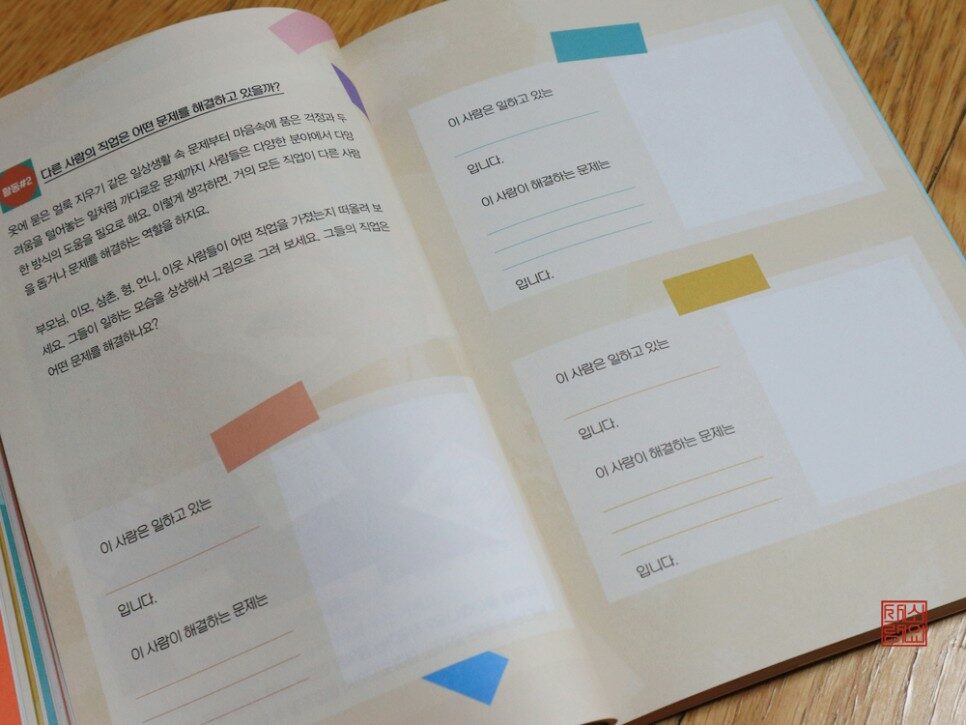 활동#2
다른 사람의 직업은 어떤 문제를 해결하고 있을까?
옷에 묻은 얼룩 지우기 같은 일상생활 속 문제부터 마음속에 품은 걱정과 두
려움을 털어놓는 일처럼 까다로운 문제까지 사람들은 다양한 분야에서 다양
한 방식의 도움을 필요로 해요. 이렇게 생각하면, 거의 모든 직업이 다른 사람
을 돕거나 문제를 해결하는 역할을 하지요.
부모님, 이모, 삼촌, 형, 언니, 이웃 사람들이 어떤 직업을 가졌는지 떠올려 보
세요. 그들이 일하는 모습을 상상해서 그림으로 그려 보세요. 그들의 직업은
어떤 문제를 해결하나요?
이 사람은 일하고 있는
입니다.
이 사람이 해결하는 문제는
이 사람은 일하고 있는
입니다.
이 사람이 해결하는 문제는
입니다.
이 사람은 일하고 있는
입니다.
이 사람이 해결하는 문제는
입니다.